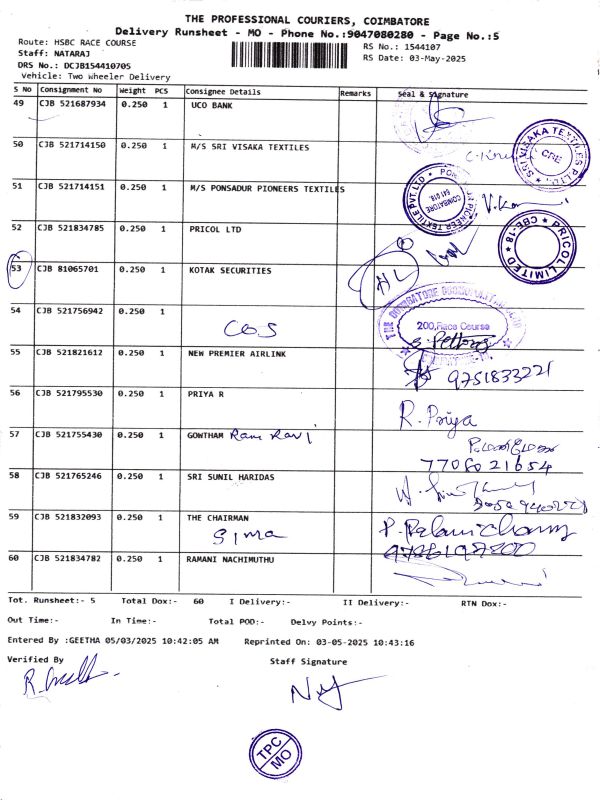 THE PROFESSIONAL COURIERS, COIMBATORE
Delivery Runsheet - MO - Phone No.:9047080280 - Page No.:5
Route: HSBC RACE COURSE
RS No.: 1544107
Staff: NATARAJ
RS Date: 03-May-2025
DRS No.: DCJB154410705
Vehicle: Two Wheeler Delivery
S No Consignment No Weight PCS Consignee Details Remarks Seal & Signature
49 CJB 521687934 0.250 1 UCO BANK
50 CJB 521714150 0.250 1 M/S SRI VISAKA TEXTILES
SRI VISAKA TEXTILES
CBE
51 CJB 521714151 0.250 1 M/S PONSADUR PIONEERS TEXTILES
COIMBATORE
641 018.
52 CJB 521834785 0.250 1 PRICOL LTD
PRICOL LIMITED ★ CBE-18 ★
53 CJB 81065701 0.250 1 KOTAK SECURITIES
54 CJB 521756942 0.250 1
COS
200, Race Course
55 CJB 521821612 0.250 1 NEW PREMIER AIRLINK
9751833221
56 CJB 521795530 0.250 1 PRIYA R
R. Priya
57 CJB 521755430 0.250 1 GOWTHAM Ram Ravi
58 CJB 521765246 0.250 1 SRI SUNIL HARIDAS
59 CJB 521832093 0.250 1 THE CHAIRMAN
SIMA
60 CJB 521834782 0.250 1 RAMANI NACHIMUTHU
Tot. Runsheet:- 5 Total Dox:- 60 I Delivery:- II Delivery:- RTN Dox:-
Out Time:- In Time:- Total POD:- Delvy Points:-
Entered By :GEETHA 05/03/2025 10:42:05 AM Reprinted On: 03-05-2025 10:43:16
Verified By Staff Signature
TPC
MO